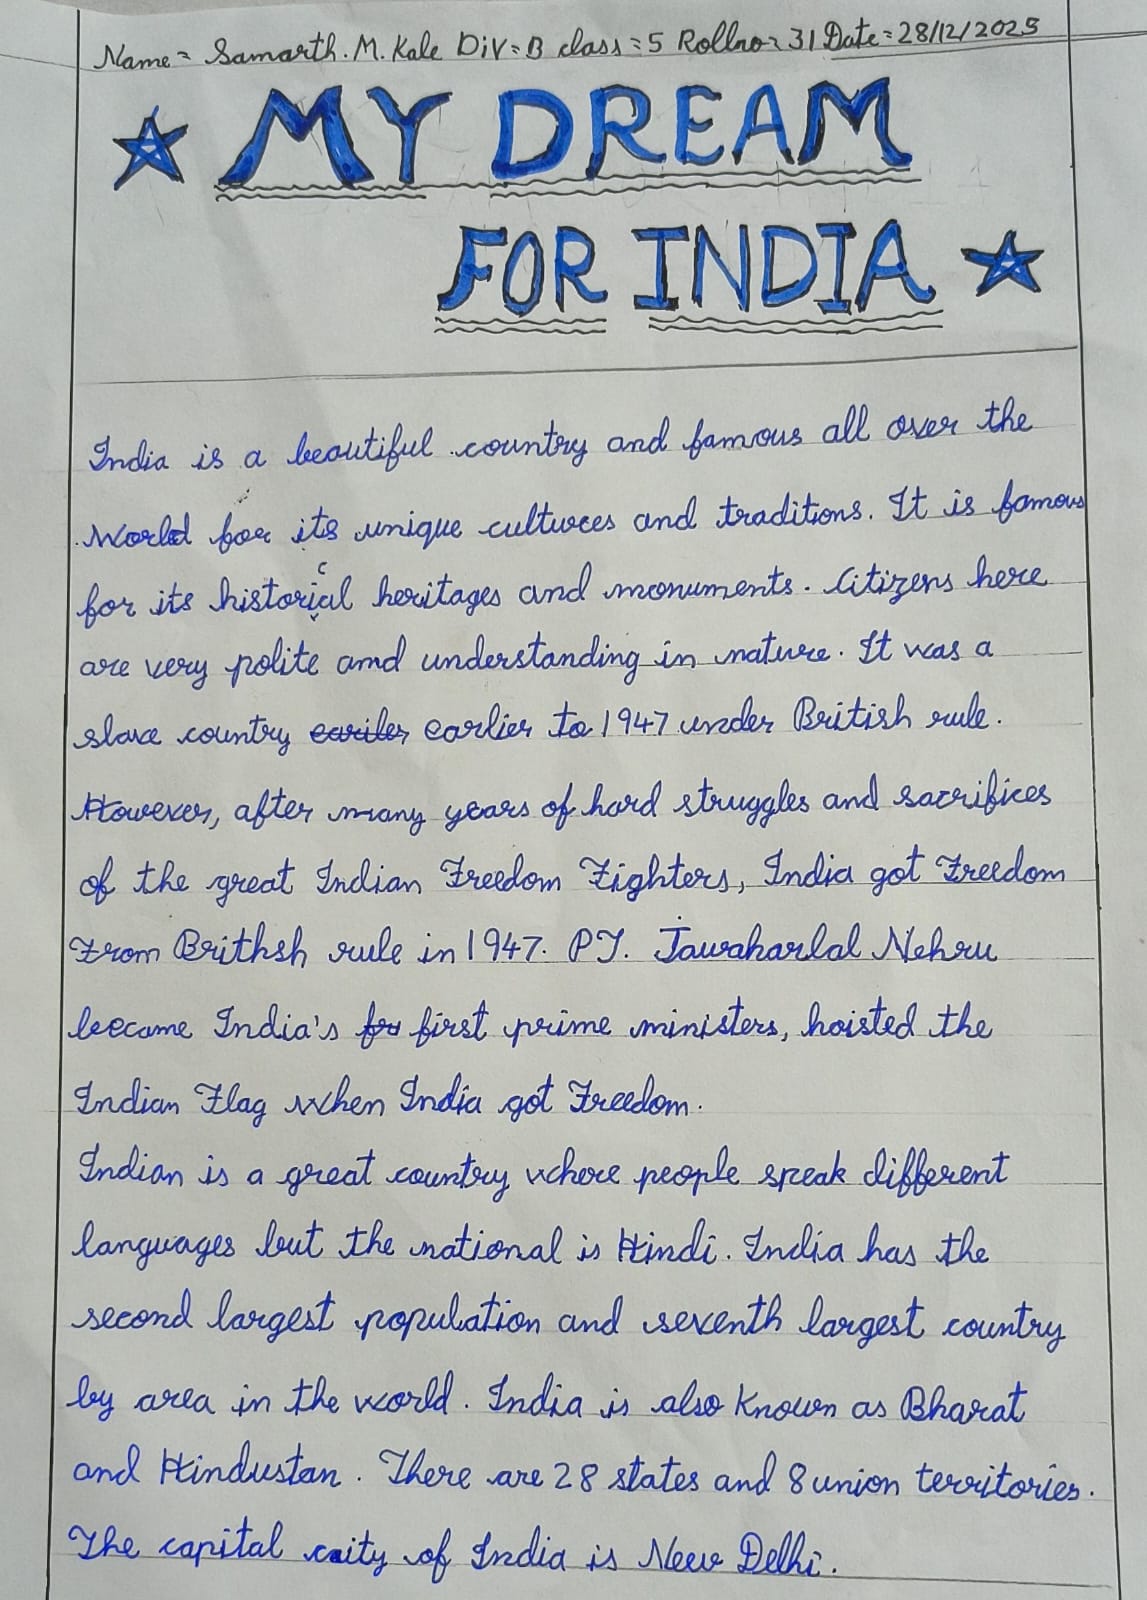 Name = Samarth. M. Kale Div = B class = 5 Rollno = 31 Date = 28/12/2025
MY DREAM
FOR INDIA
India is a beautiful country and famous all over the
World for its unique cultures and traditions. It is famous
for its historical heritages and monuments. Citizens here
are very polite and understanding in nature. It was a
slave country eariler earlier to 1947 under British rule.
However, after many years of hard struggles and sacrifices
of the great Indian Freedom Fighters, India got Freedom
From Brithsh rule in 1947. PT. Jawaharlal Nehru
became India's for first prime ministers, hoisted the
Indian Flag when India got Freedom.
Indian is a great country where people speak different
languages but the national is Hindi. India has the
second largest population and seventh largest country
by area in the world. India is also Known as Bharat
and Hindustan. There are 28 states and 8 union territories.
The capital caity of India is New Delhi.